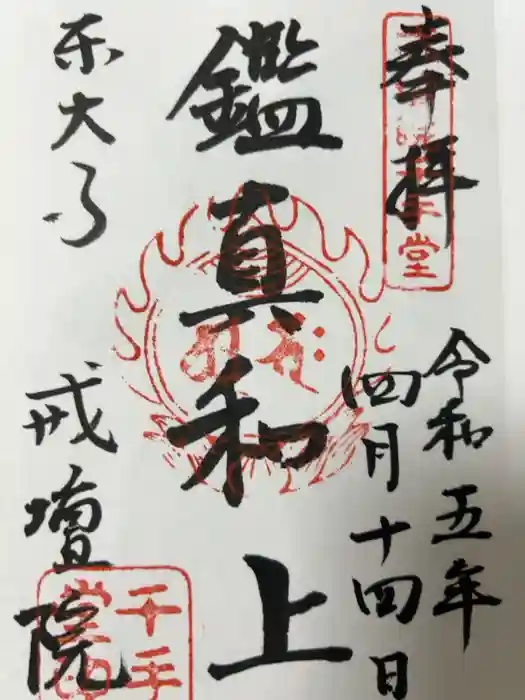 奉拝
令和五年
四月十四日
鑑真和上
東大寺
戒壇院
千手
堂